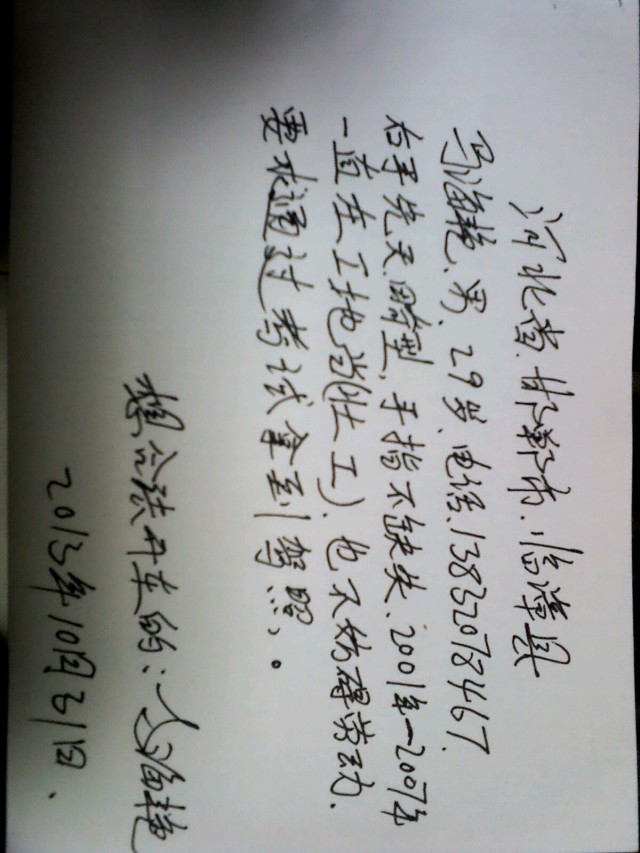 河北省、邯郸市、临漳县
马海艳、男、29岁、电话、13832078467.
右手先天畸型、手指不缺失、2001年一2007年
一直在工地当(壮工)、也不妨碍劳动.
要求通过考试拿到驾照。
想合法开车的:马海艳
2013年10月31日.